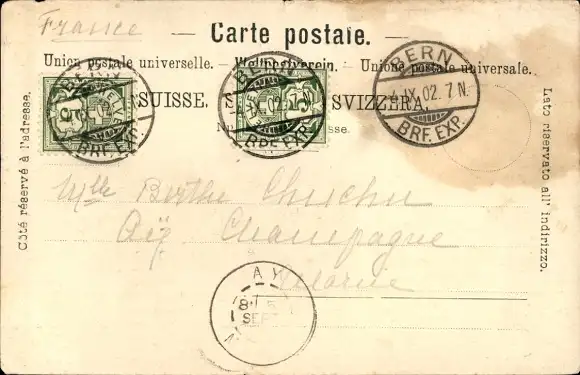 France
— Carte postale. —
Union postale universelle. — Weltpostverein. — Unione postale universale.
SUISSE. SVIZZERA.
Côté réservé à l'adresse.
Lato riservato all' indirizzo.
BERN
IX.02.7 N.
BRF. EXP.
BERN
IX.02.
BRF. EXP.
BRF. EXP.
5
5
Mlle Berthe
Aÿ Champagne
Marne
AY
8
SEPT